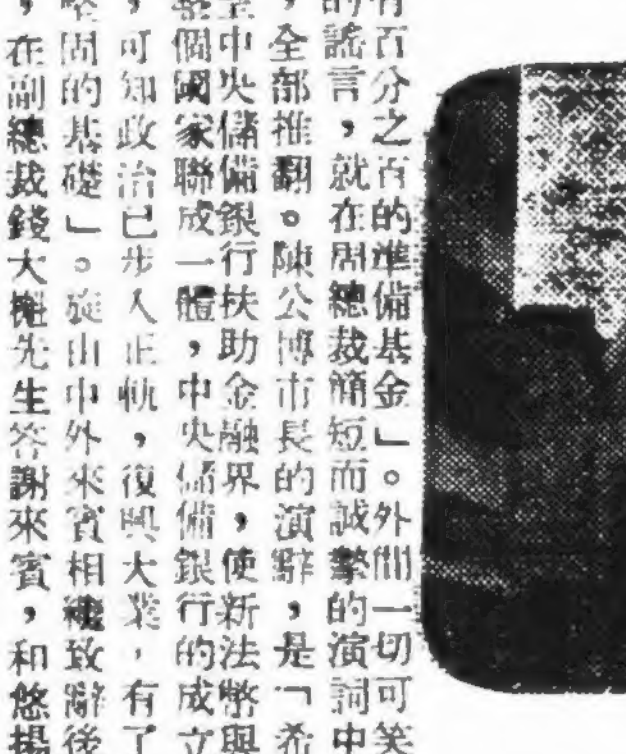 有百分之百的準備基金」。外間一切可笑
的謠言,就在周總裁簡短而誠摯的演詞中
,全部推翻。陳公博市長的演辭,是「希
望中央儲備銀行扶助金融界,使新法幣與
整個國家聯成一體,中央儲備銀行的成立
,可知政治已步入正軌,復興大業,有了
堅固的基礎」。旋由中外來賓相繼致辭後
,在副總裁錢大櫆先生答謝來賓,和悠揚